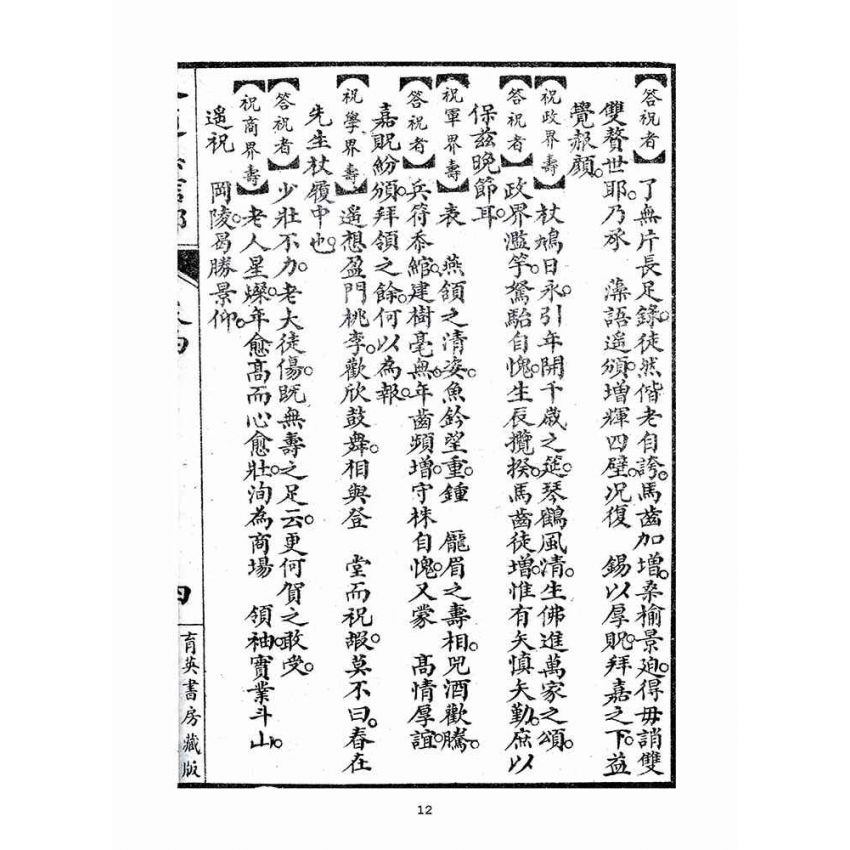 【答祝者】了無片長足錄。徒然偕老自誇。馬齒加增。桑榆景迫。得毋誚雙
雙贅世耶。乃承　藻語遥頒。增輝四壁。况復　錫以厚貺。拜嘉之下。益
覺赧顏。
【祝政界壽】杖鳩日永。引年開千歲之筵。琴鶴風清。生佛進萬家之頌。
【答祝者】政界濫竽。駑駘自愧。生辰攬揆。馬齒徒增。惟有矢慎矢勤。庶以
保兹晚節耳。
【祝軍界壽】表　燕頷之清姿。魚鈐望重。鍾　龎眉之壽相。兕酒歡騰。
【答祝者】兵符忝綰。建樹毫無。年齒頻增。守株自愧。又蒙　高情厚誼。
嘉貺紛頒。拜領之餘。何以為報。
【祝學界壽】遥想盈門桃李。歡欣鼓舞。相與登　堂而祝嘏。莫不曰。春在
先生杖履中也。
【答祝者】少壯不力。老大徒傷。既無壽之足云。更何賀之敢受。
【祝商界壽】老人星燦。年愈高而心愈壯。洵為商塲　領袖。實業斗山。
遥祝　岡陵。曷勝景仰。
四
育英書房藏版
12